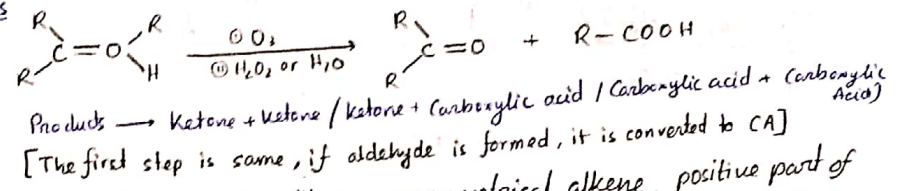 R R R
C=O R H ① O₃ → ⑪ H₂O₂ or H₂O C=O + R-COOH
R R
Products → Ketone + Ketone / Ketone + Carboxylic acid / Carboxylic acid + Carboxylic Acid)
[The first step is same, if aldehyde is formed, it is converted to CA]
alkene, positive part of